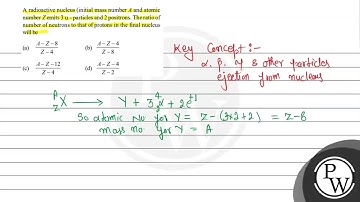 A radioactive nucleus (initial mass number A and atomic
number Z emits 3 α - particles and 2 positrons. The ratio of
number of neutrons to that of protons in the final nucleus
will be
(a) A – Z – 8 / Z – 4 (b) A – Z – 4 / Z – 8
(c) A – Z – 12 / Z – 4 (d) A – Z – 4 / Z – 2
Key Concept :-
α, β, γ & other particles
ejection from nucleus
A Z X → Y + 3 4 2 α + 2e+1
So atomic No for Y = Z - (3x2+2) = Z-8
mass no for Y = A
P
W